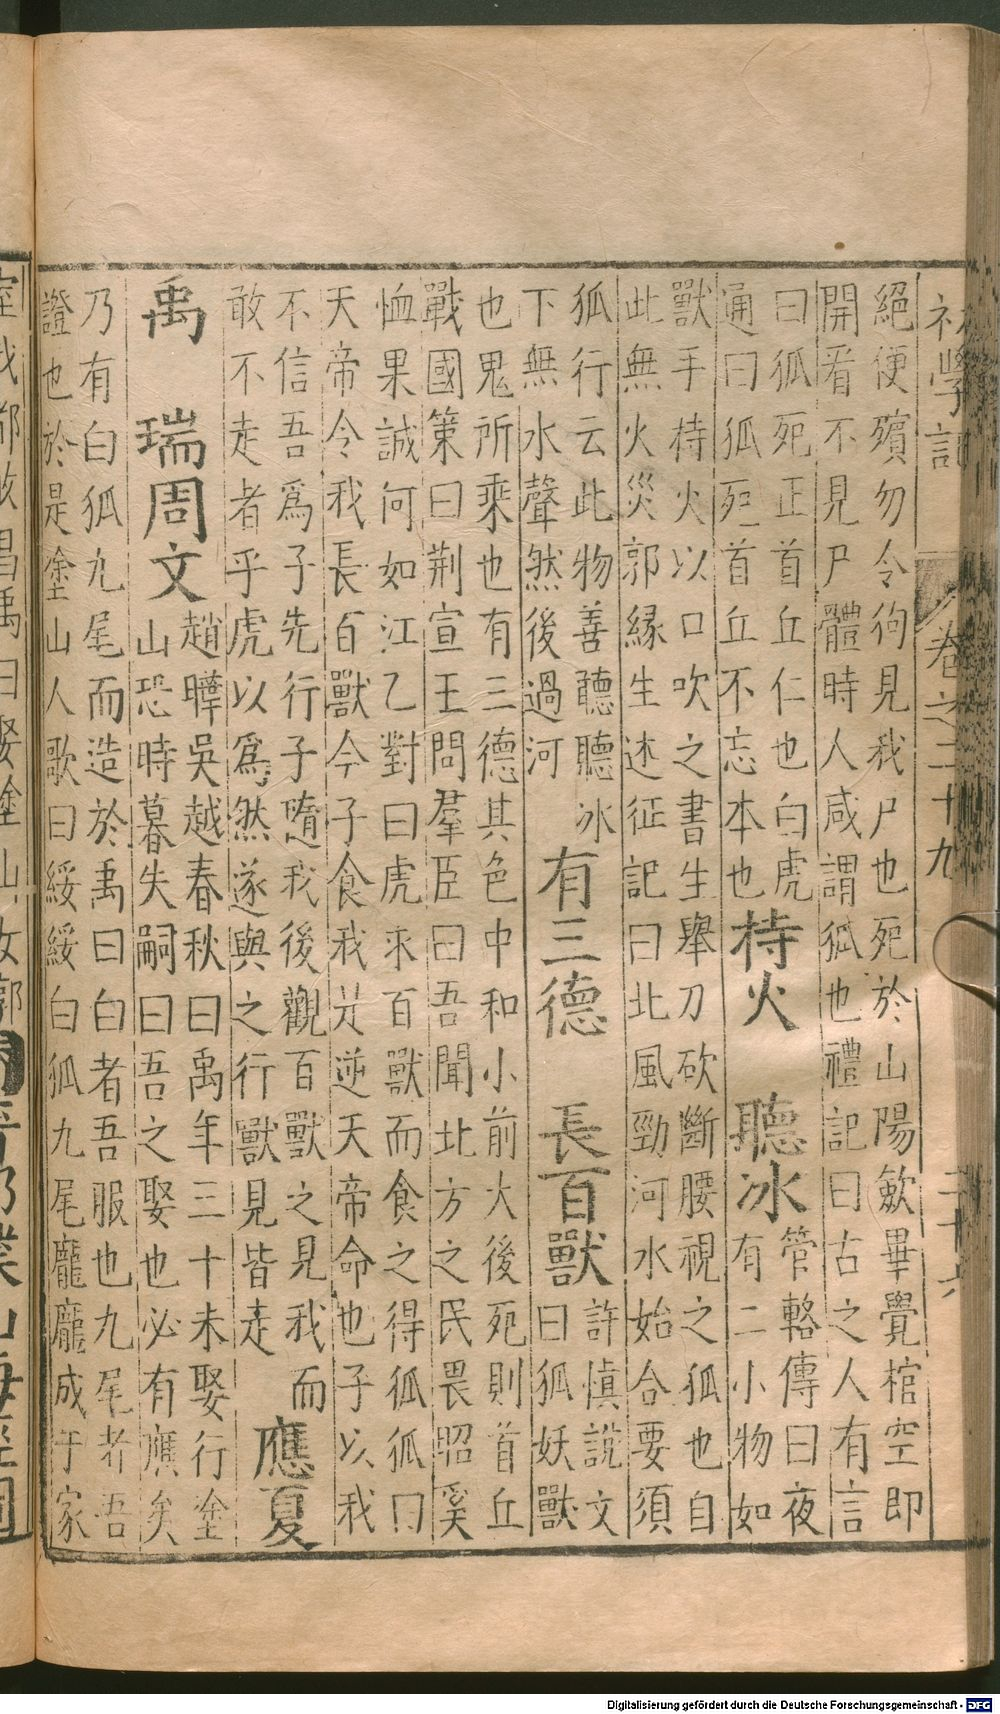 初學記
卷之二十九
二十六
絕便殯勿令狥見我尸也死於山陽歛畢覺棺空即
開看不見尸體時人咸謂狐也禮記曰古之人有言
曰狐死正首丘仁也白虎
通曰狐死首丘不忘本也
持火
聽冰
管輅傳曰夜
有二小物如
獸手持火以口吹之書生舉刀砍斷腰視之狐也自
此無火災郭縁生述征記曰北風勁河水始合要須
狐行云此物善聽聽冰
下無水聲然後過河
有三德
長百獸
許慎說文
曰狐妖獸
也鬼所乘也有三德其色中和小前大後死則首丘
戰國策曰荆宣王問羣臣曰吾聞北方之民畏昭奚
恤果誠何如江乙對曰虎求百獸而食之得狐狐曰
天帝令我長百獸今子食我是逆天帝命也子以我
不信吾爲子先行子隨我後觀百獸之見我而
敢不走者乎虎以爲然遂與之行獸見皆走
應夏
禹
瑞周文
趙曄吳越春秋曰禹年三十未娶行塗
山恐時暮失嗣曰吾之娶也必有應矣
乃有白狐九尾而造於禹曰白者吾服也九尾者吾
證也於是塗山人歌曰綏綏白狐九尾龐龐成于家
Digitalisierung gefördert durch die Deutsche Forschungsgemeinschaft - DFG